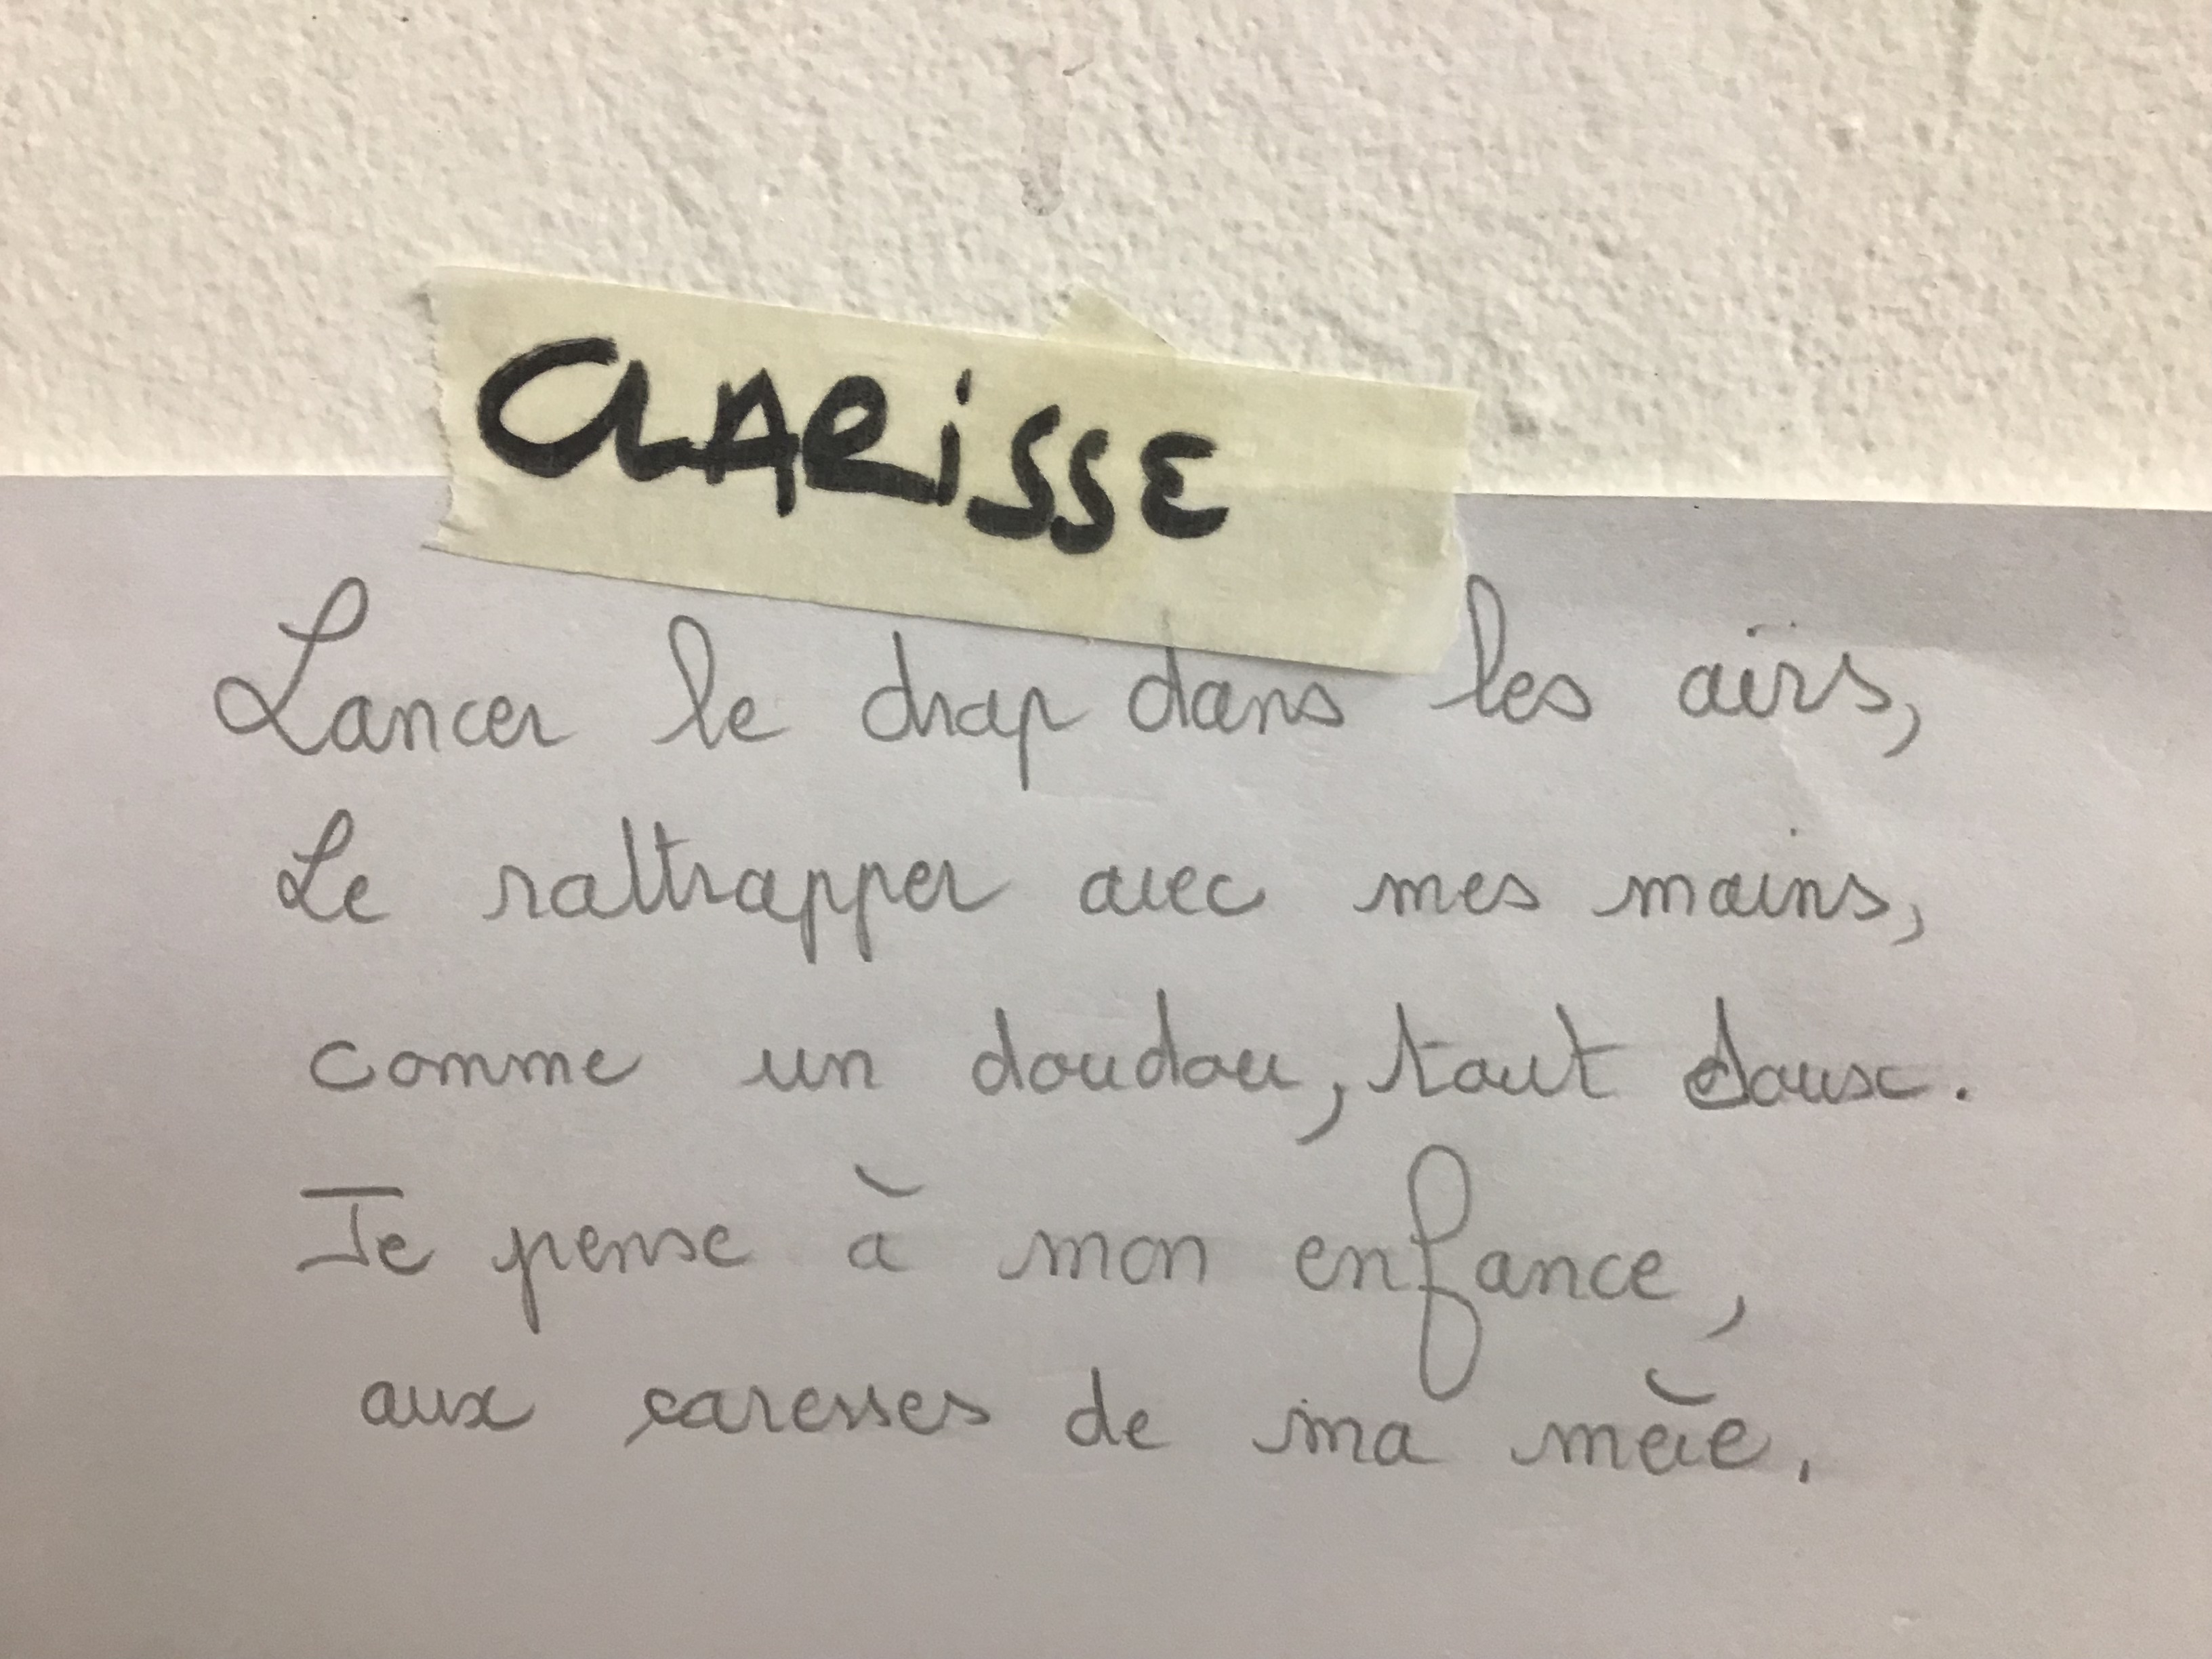 CLARiSSE
Lancer le drap dans les airs,
Le rattrapper avec mes mains,
comme un doudou, tout doux.
Je pense à mon enfance,
aux caresses de ma mère.